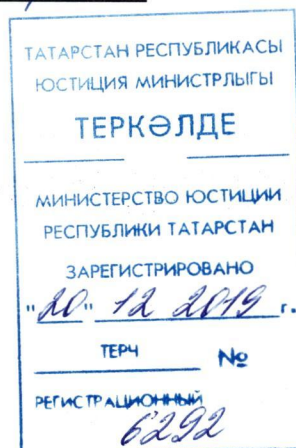 ТАТАРСТАН РЕСПУБЛИКАСЫ
ЮСТИЦИЯ МИНИСТРЛЫГЫ
ТЕРКӘЛДЕ
МИНИСТЕРСТВО ЮСТИЦИИ
РЕСПУБЛИКИ ТАТАРСТАН
ЗАРЕГИСТРИРОВАНО
"20" 12 2019 г.
ТЕРЧ №
РЕГИСТРАЦИОННЫЙ
6292